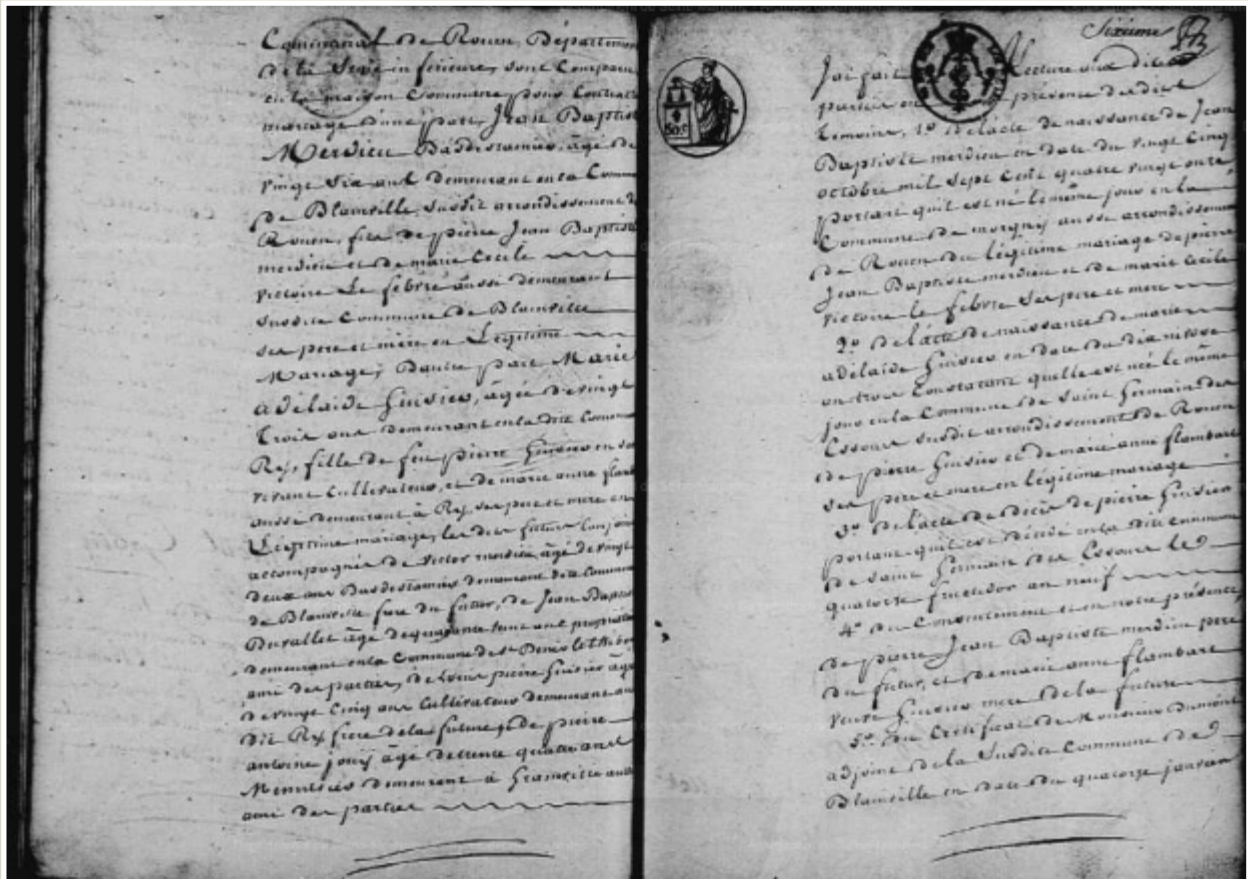 Communal de Rouen, Département
de la Seine inférieure, sont Comparus
en la maison Commune pour Contracter
mariage d'une part, Jean Baptiste
Merdieu Badestamier, âgé de
vingt six ans demeurant en la Commune
de Blainville susdit arrondissement de
Rouen, fils de pierre Jean Baptiste
merdieu et de marie Cecile
victoire Le febvre aussi demeurant
susdite Commune de Blainville
ses pere et mere en Légitime
Mariage; D'autre part Marie
adélaïde, âgée de vingt
trois ans demeurant en la dite Commune
Ry, fille de feu pierre en son
vivant Cultivateur, et de marie anne flambart
aussi demeurant à Ry ses pere et mere en
Légitime mariage, les dits futurs Conjoints
accompagnés de victor merdieu âgé de vingt
deux ans Basdestamier demeurant dite Commune
de Blainville frere du futur, de Jean Baptiste
Duvallet âgé de ans propriétaire
demeurant en la Commune de St Denis le thibout
ami des parties, de pierre âgé
de vingt Cinq ans Cultivateur demeurant au
dit Ry frere de la future, & de pierre
antoine âgé de trente quatre ans
Menuisier demeurant à Grainville aussi
ami des parties
Sixième
J'ai fait Lecture aux dites
parties en présence des dits
témoins, 1o de l'acte de naissance de Jean
Baptiste merdieu en date du vingt Cinq
octobre mil sept Cent quatre vingt onze
portant qu'il est né le même jour en la
Commune de morgny aussi arrondissement
de Rouen du légitime mariage de pierre
Jean Baptiste merdieu et de marie Cécile
victoire le febvre ses pere et mere
2o de l'acte de naissance de marie
adélaïde en date du dix nivose
an trois Constatant qu'elle est née le même
jour en la Commune de Saint Germain des
Essours susdit arrondissement de Rouen
de pierre et de marie anne flambart
ses pere et mere en légitime mariage
3o de l'acte de décès de pierre
portant qu'il est décédé en la dite commune
de Saint Germain des Essours le
quatorze fructidor an neuf
4o du Consentement et en notre présence,
de pierre Jean Baptiste merdieu pere
du futur, et de marie anne flambart
veuve mere de la future
5o du Certificat de Monsieur Dumont
adjoint de la Susdite Commune de
Blainville en date du quatorze janvier